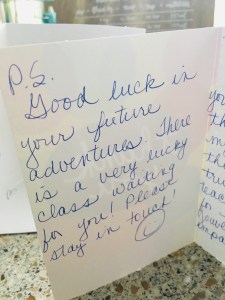 P.S.
Good luck in
your future
adventures There
is a very lucky
class waiting
for you! Please
stay in touch!